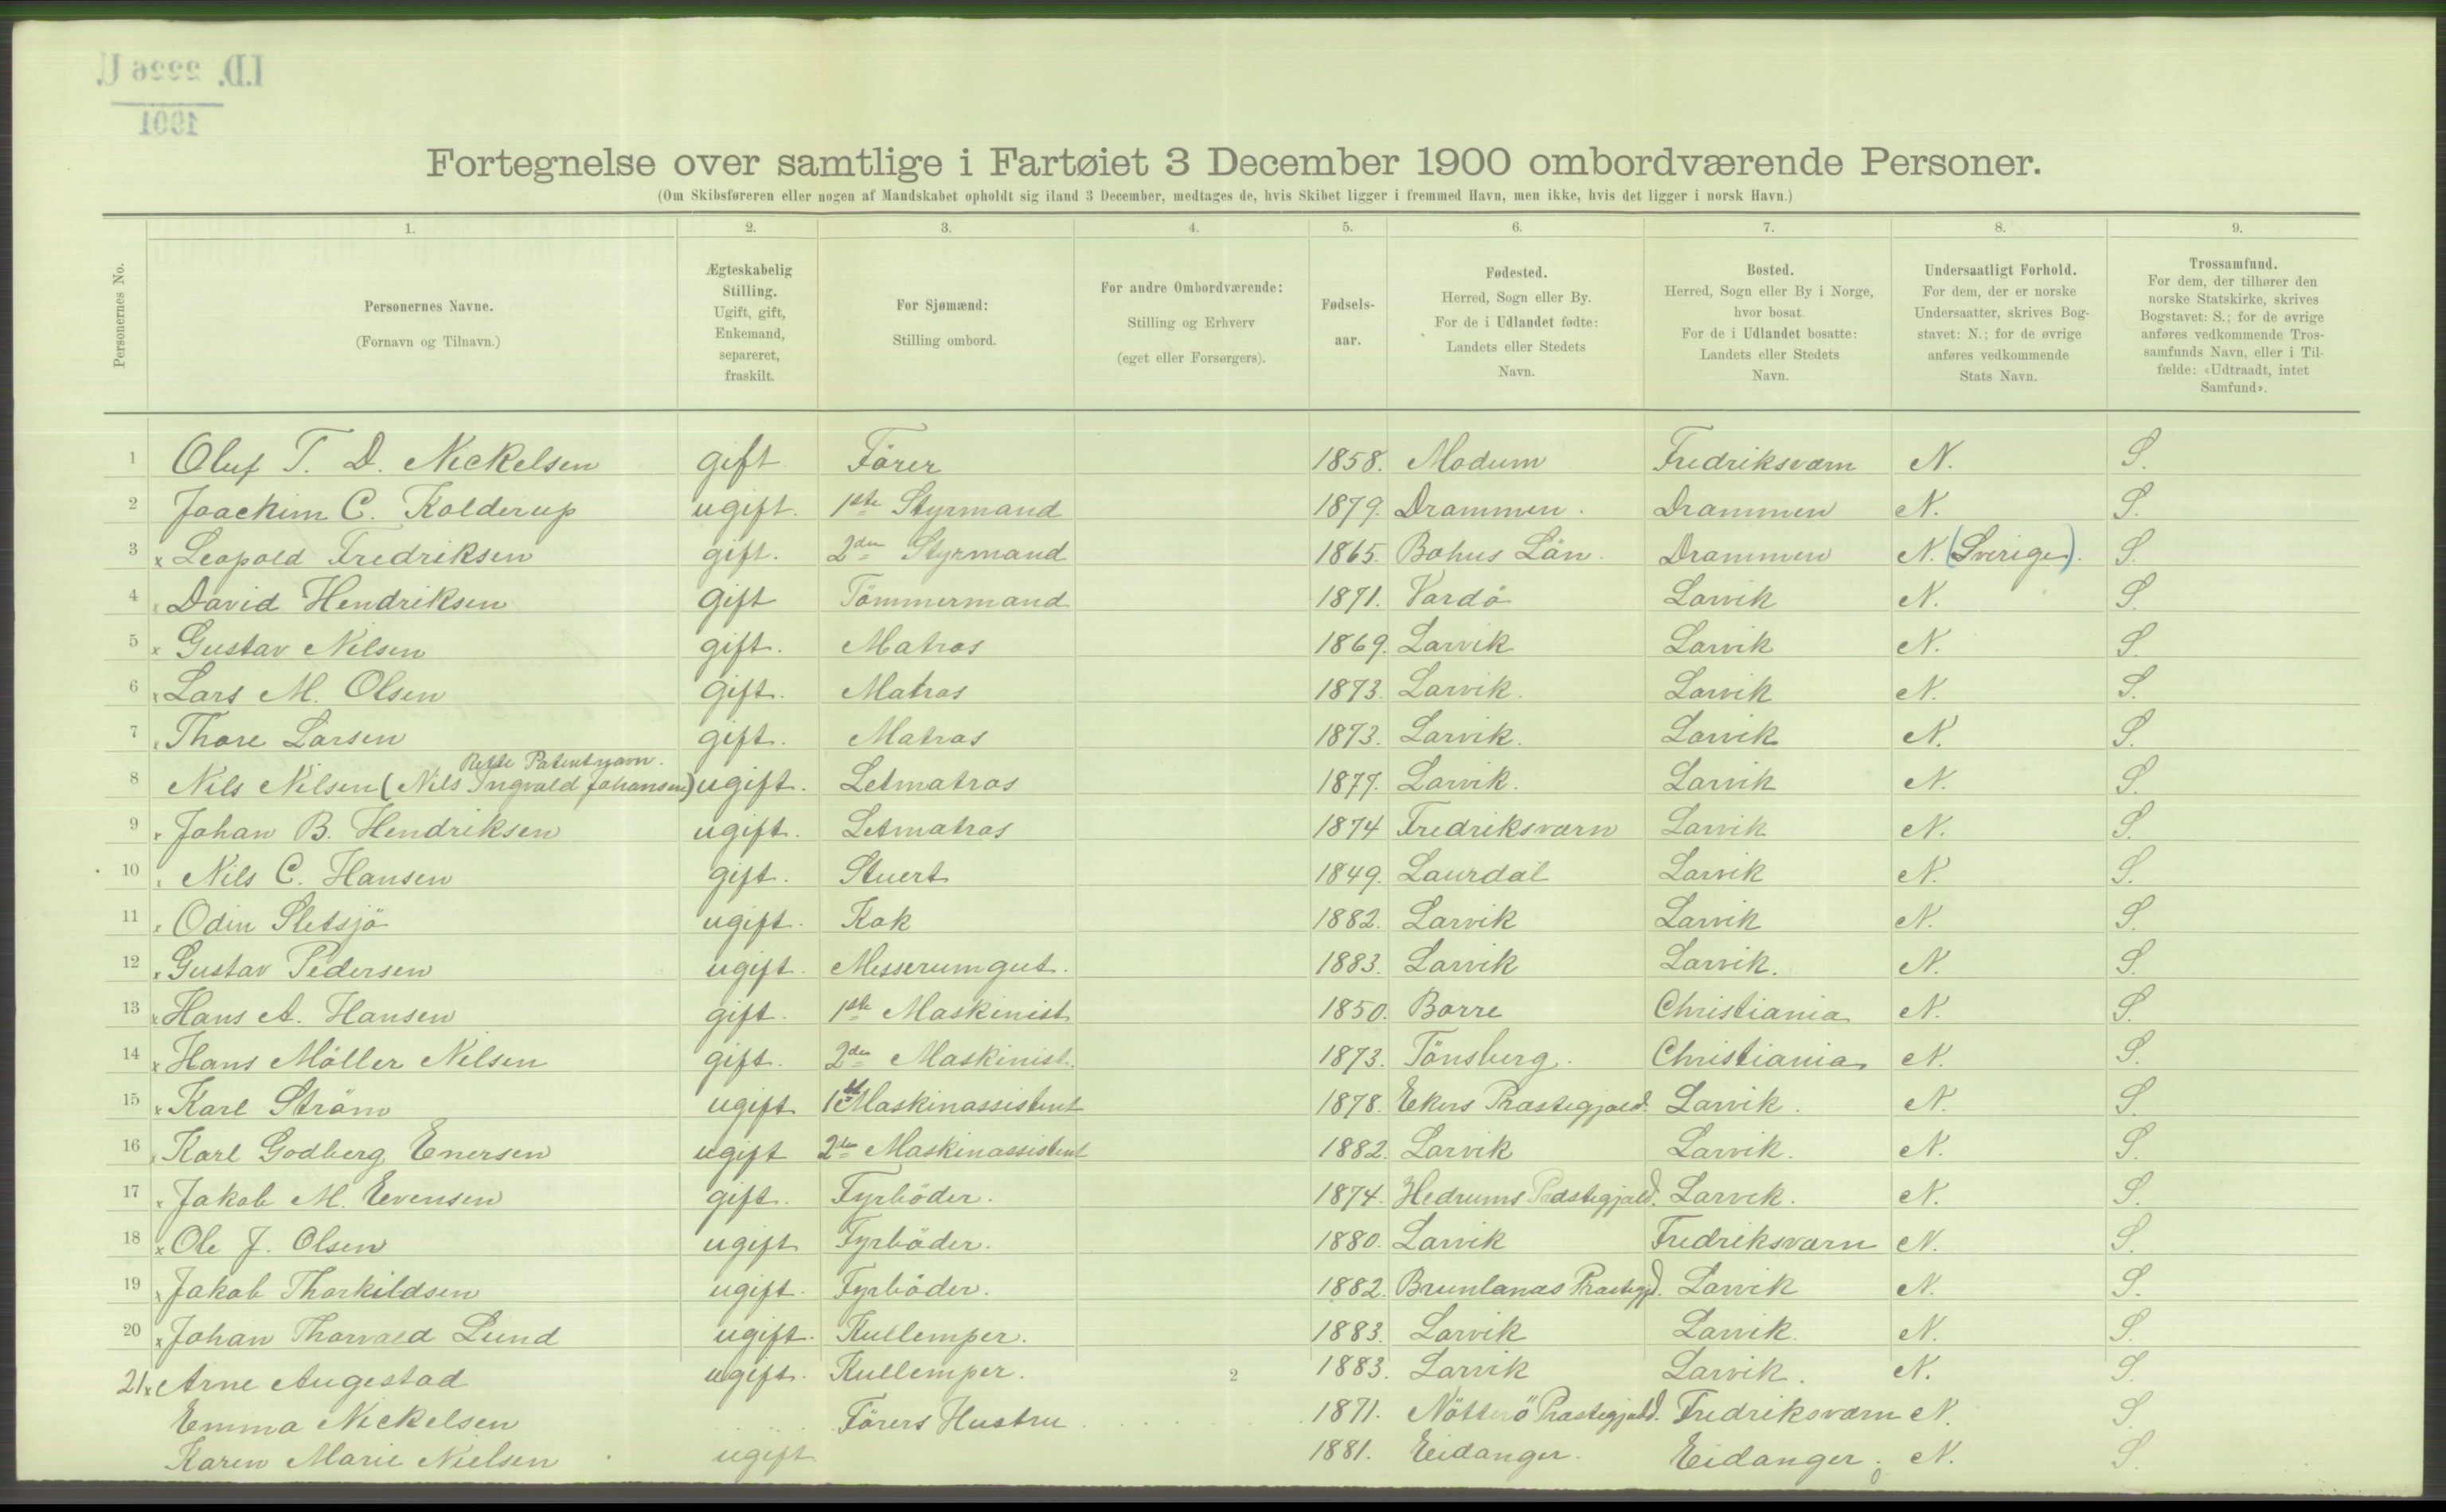 I.D. 2226 U.
1901
Fortegnelse over samtlige i Fartøiet 3 December 1900 ombordværende Personer.
(Om Skibsføreren eller nogen af Mandskabet opholdt sig iland 3 December, medtages de, hvis Skibet ligger i fremmed Havn, men ikke, hvis det ligger i norsk Havn.)
1. 2. 3. 4. 5. 6. 7. 8. 9.
Personernes No.
Personernes Navne.
(Fornavn og Tilnavn.)
Ægteskabelig
Stilling.
Ugift, gift,
Enkemand,
separeret,
fraskilt.
For Sjømænd:
Stilling ombord.
For andre Ombordværende:
Stilling og Erhverv
(eget eller Forsørgers).
Fødsels-
aar.
Fødested.
Herred, Sogn eller By.
For de i Udlandet fødte:
Landets eller Stedets
Navn.
Bosted.
Herred, Sogn eller By i Norge,
hvor bosat.
For de i Udlandet bosatte:
Landets eller Stedets
Navn.
Undersaatligt Forhold.
For dem, der er norske
Undersaatter, skrives Bog-
stavet: N.; for de øvrige
anføres vedkommende
Stats Navn.
Trossamfund.
For dem, der tilhører den
norske Statskirke, skrives
Bogstavet: S.; for de øvrige
anføres vedkommende Tros-
samfunds Navn, eller i Til-
fælde: «Udtraadt, intet
Samfund».
1 Oluf T. D. Nickelsen gift Förer 1858. Modum Fredriksværn N. S.
2 Joachim C. Kolderup ugift. 1ste Styrmand 1879. Drammen. Drammen N. S.
3 x Leopold Fredriksen gift. 2den Styrmand 1865. Bohus Län. Drammen N. (Sverige). S.
4 x David Hendriksen gift Tömmermand 1871. Vardö Larvik N. S.
5 x Gustav Nilsen gift. Matros 1869. Larvik Larvik N. S.
6 x Lars M. Olsen gift. Matros 1873. Larvik. Larvik N. S.
7 x Thore Larsen gift. Matros 1873. Larvik. Larvik N. S.
Rette Patentnavn.
8 Nils Nilsen (Nils Ingvald Johansen) ugift. Letmatros 1877. Larvik. Larvik N. S.
9 x Johan B. Hendriksen ugift. Letmatros 1874 Fredriksværn Larvik N. S.
10 x Nils C. Hansen gift. Stuert 1849. Laurdal Larvik N. S.
11 x Odin Sletsjö ugift. Kok 1882. Larvik Larvik N. S.
12 x Gustav Pedersen ugift. Messerumgut. 1883. Larvik Larvik. N. S.
13 x Hans A. Hansen gift. 1ste Maskinist 1850. Borre Christiania N. S.
14 x Hans Möller Nilsen gift. 2den Maskinist. 1873. Tönsberg. Christiania N. S.
15 x Karl Ström ugift 1ste Maskinassistent 1878. Ekers Præstegjæld. Larvik. N. S.
16 x Karl Godberg Enersen ugift 2den Maskinassistent 1882. Larvik Larvik. N. S.
17 x Jakob M. Evensen gift. Fyrböder. 1874. Hedrums Præstegjæld. Larvik. N. S.
18 x Ole J. Olsen ugift Fyrböder. 1880. Larvik Fredriksværn N. S.
19 x Jakob Thorkildsen ugift. Fyrböder. 1882. Brunlanæs Præstegjd. Larvik N. S.
20 x Johan Thorvald Lund ugift. Kullemper. 1883. Larvik Larvik. N. S.
21 x Arne Augestad ugift. Kullemper. 2 1883. Larvik Larvik. N. S.
Emma Nickelsen Förers Hustru 1871. Nötterö Præstegjæld. Fredriksværn N. S.
Karen Marie Nielsen ugift 1881. Eidanger. Eidanger. N. S.